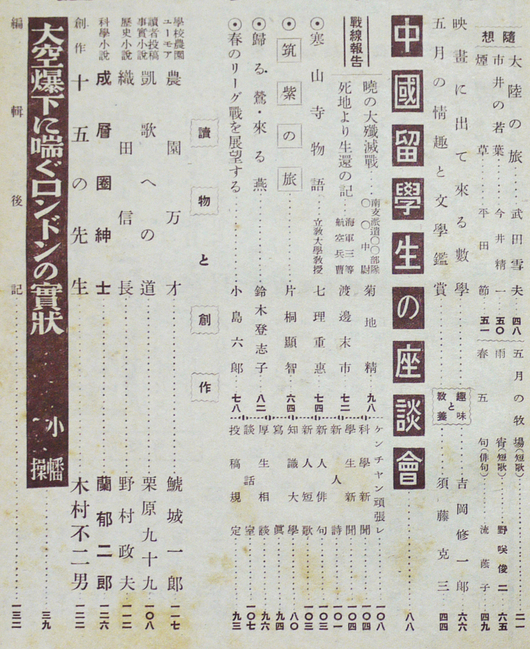 隨想
大陸の旅……武田雪夫…四八
市井の若葉……今井精一…五〇
煙草……平田節…五一
五月の牧場(短歌)……二一
春雨(短歌)……野咲俊二…六五
五句(俳句)……流蘆子…四九
映畫に出て來る數學……吉岡修一郎…六六
五月の情趣と文學鑑賞……須藤克三…四四
趣味と教養
中國留學生の座談會……八八
戰線報告
曉の大殲滅戰……南支派遣〇〇部隊〇〇中尉 菊地精…九八
死地より生還の記……海軍三等航空兵曹 渡邊末市…七二
寒山寺物語……立教大學教授 七理重惠…七四
筑紫の旅……片桐顯智…六四
歸る鶯・來る燕……鈴木登志子…八二
春のリーグ戰を展望する……小島六郎…七八
ケンチャン頑張レ……一〇八
科學新聞……一〇四
學生新聞……一〇四
新人詩……一〇一
新人俳句……一〇三
新人短歌……一〇三
知識大學……八〇
寫眞……九四
厚生相談……九六
談話室……一〇七
投稿規定……九三
讀物と創作
學校農園ユーモア 農園万才……鯱城一郎…一一七
讀者投稿事實小説 凱歌への道……栗原九十九…一〇八
歷史小説 織田信長……野村政夫…一一二
科學小説 成層圈紳士……蘭郁二郎…一二六
創作 十五の先生……木村不二男…一二二
大空爆下に喘ぐロンドンの實狀……小幡操…三九
編輯後記……一三二